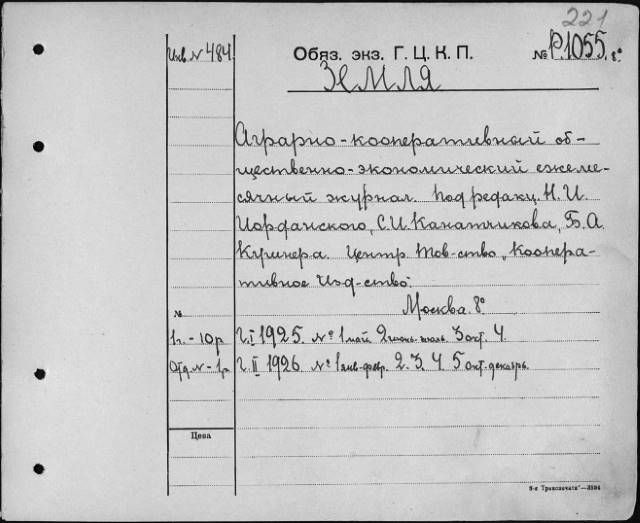 221
Инв. N 484
Обяз. экз. Г. Ц. К. П.
№ Р.1055. 8°
Земля
Аграрно-кооперативный об-
щественно-экономический ежеме-
сячный журнал. Под редакц. Н. И.
Иорданского, С. И. Канатчикова, Б. А.
Кушнера. Центр. Тов-ство „Коопера-
тивное Изд-ство".
Москва. 8°
№
1 г. - 10 р
Г. I 1925. № 1 май 2 июнь-июль. 3 окт. 4.
Отд. N - 1 р
Г. II 1926 № 1 янв-февр. 2. 3. 4 5 окт.-декабрь.
Цена
8-я Транспечати"—3594